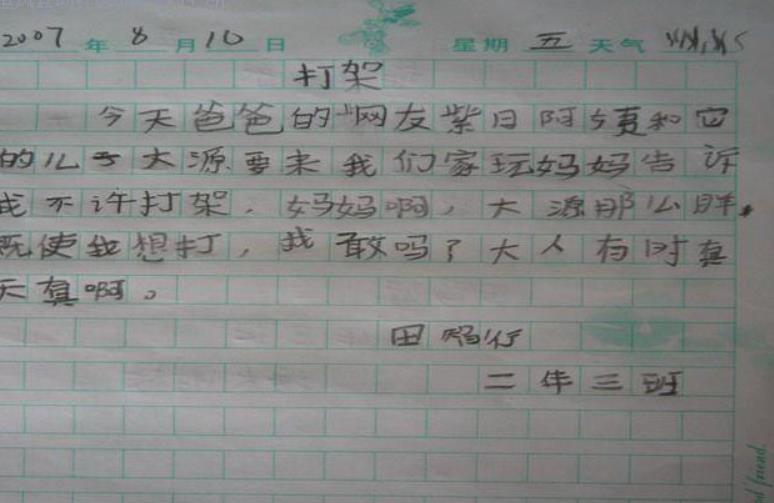 2007 年 8 月 10 日 星期 五 天气
打架
今天爸爸的"网友紫日阿姨和它
的儿子大源要来我们家玩妈妈告诉
我不许打架,妈妈啊,大源那么胖,
既使我想打,我敢吗?大人有时真
天真啊。
田 行
二年三班
friend